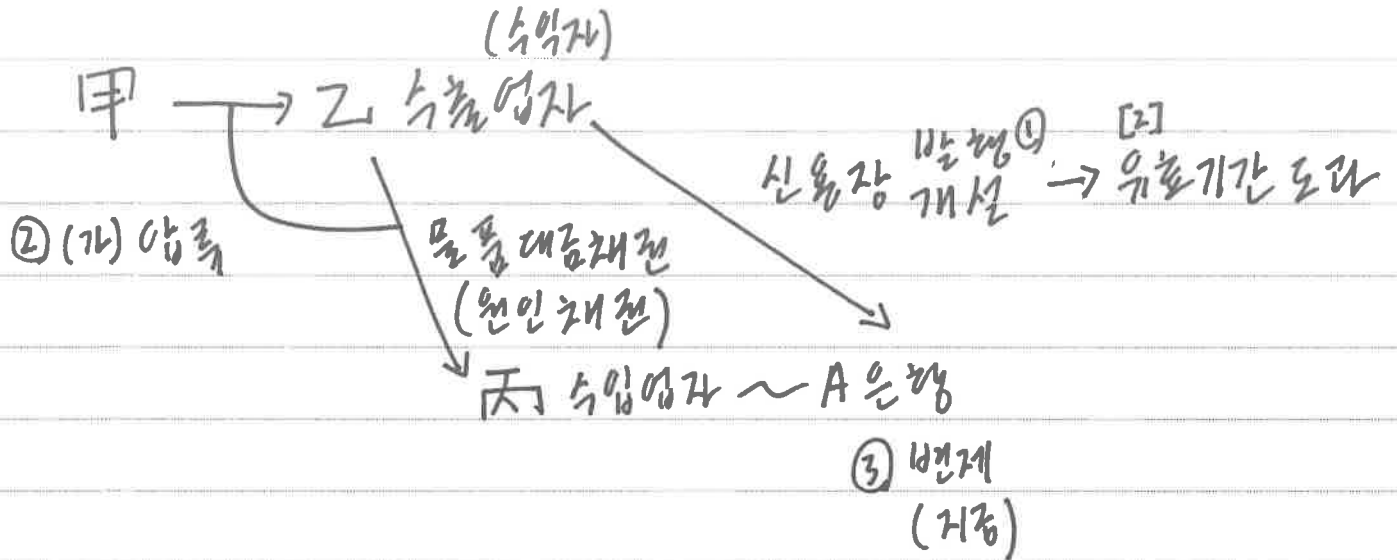 (수익자)
甲 → 乙 수출업자
신용장 발행① 개설 → [2] 유효기간 도과
② (가) 압류
물품대금채권
(원인채권)
丙 수입업자 ~ A 은행
③ 변제
(지급)